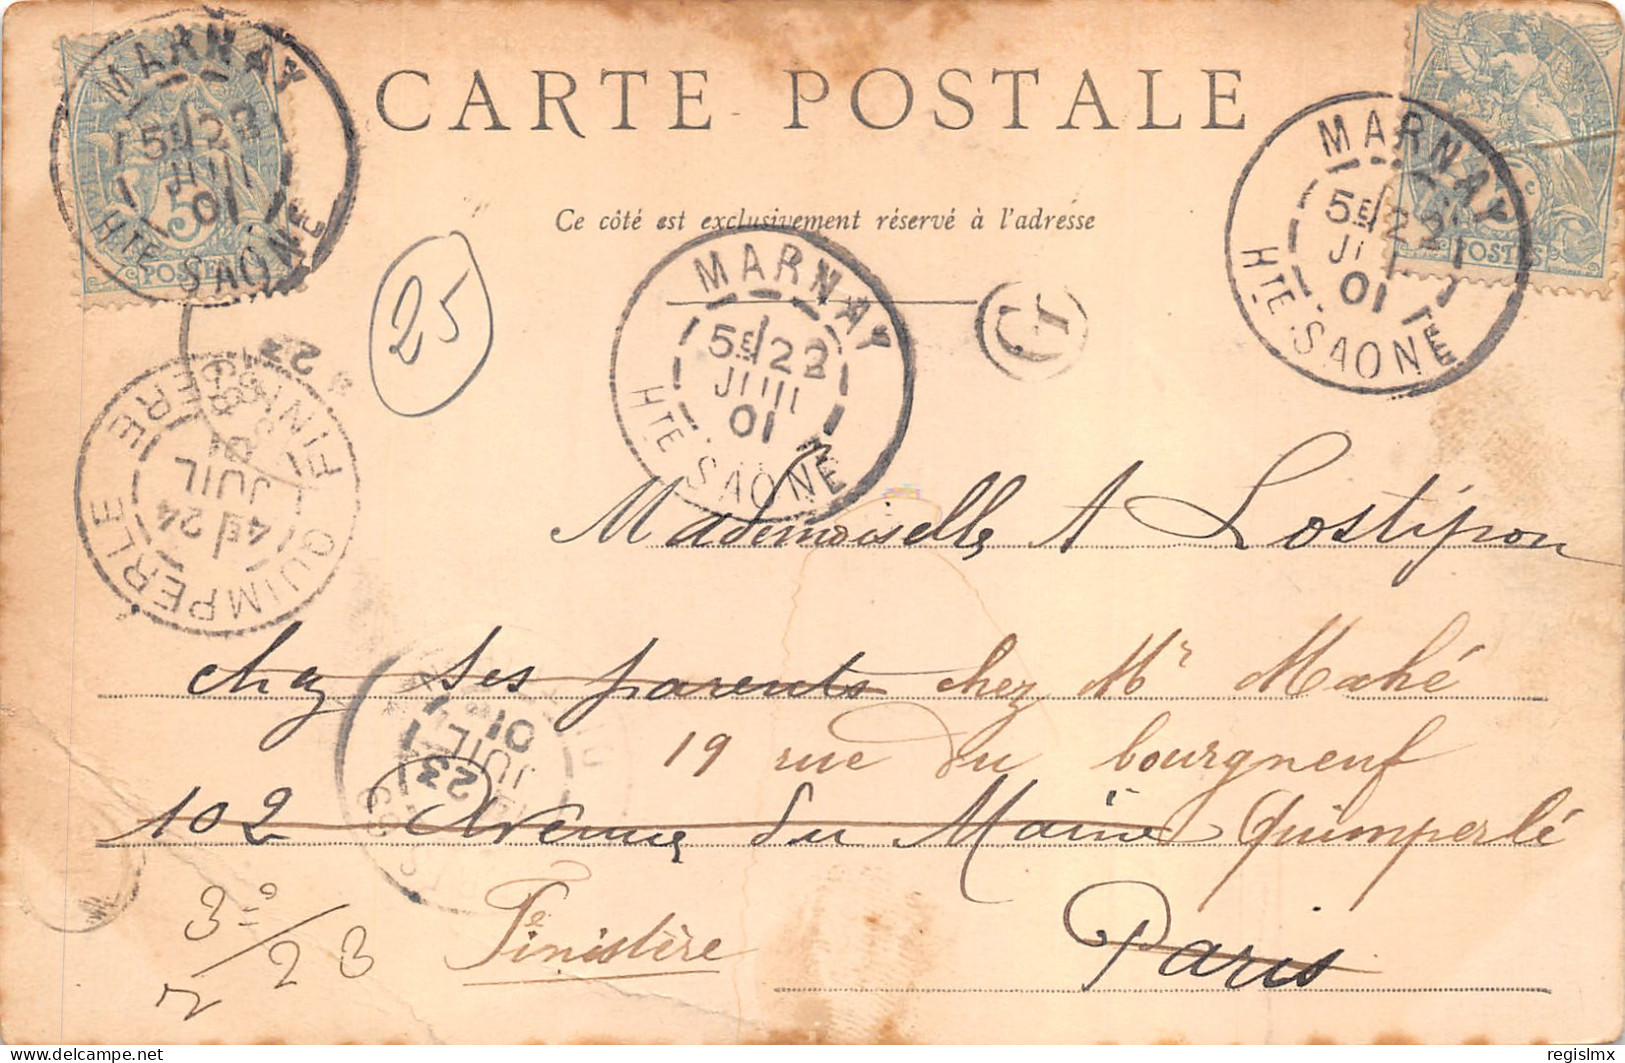 CARTE POSTALE
Ce côté est exclusivement réservé à l'adresse
MARNAY
5E 22
01
HTE SAONE
POSTES
5
25
MARNAY
5E 22
01
HTE SAONE
MARNAY
5E 22
01
HTE SAONE
POSTES
QUIMPERLE
4E 24
JUIL
01
FINISTERE
23
JUIL
01
Mademoiselle A Lostipon
chez ses parents chez Mr Mahé
19 rue du bourgneuf
102 Avenue du Maine Quimperlé
Finistère
Paris
delcampe.net
regislmx